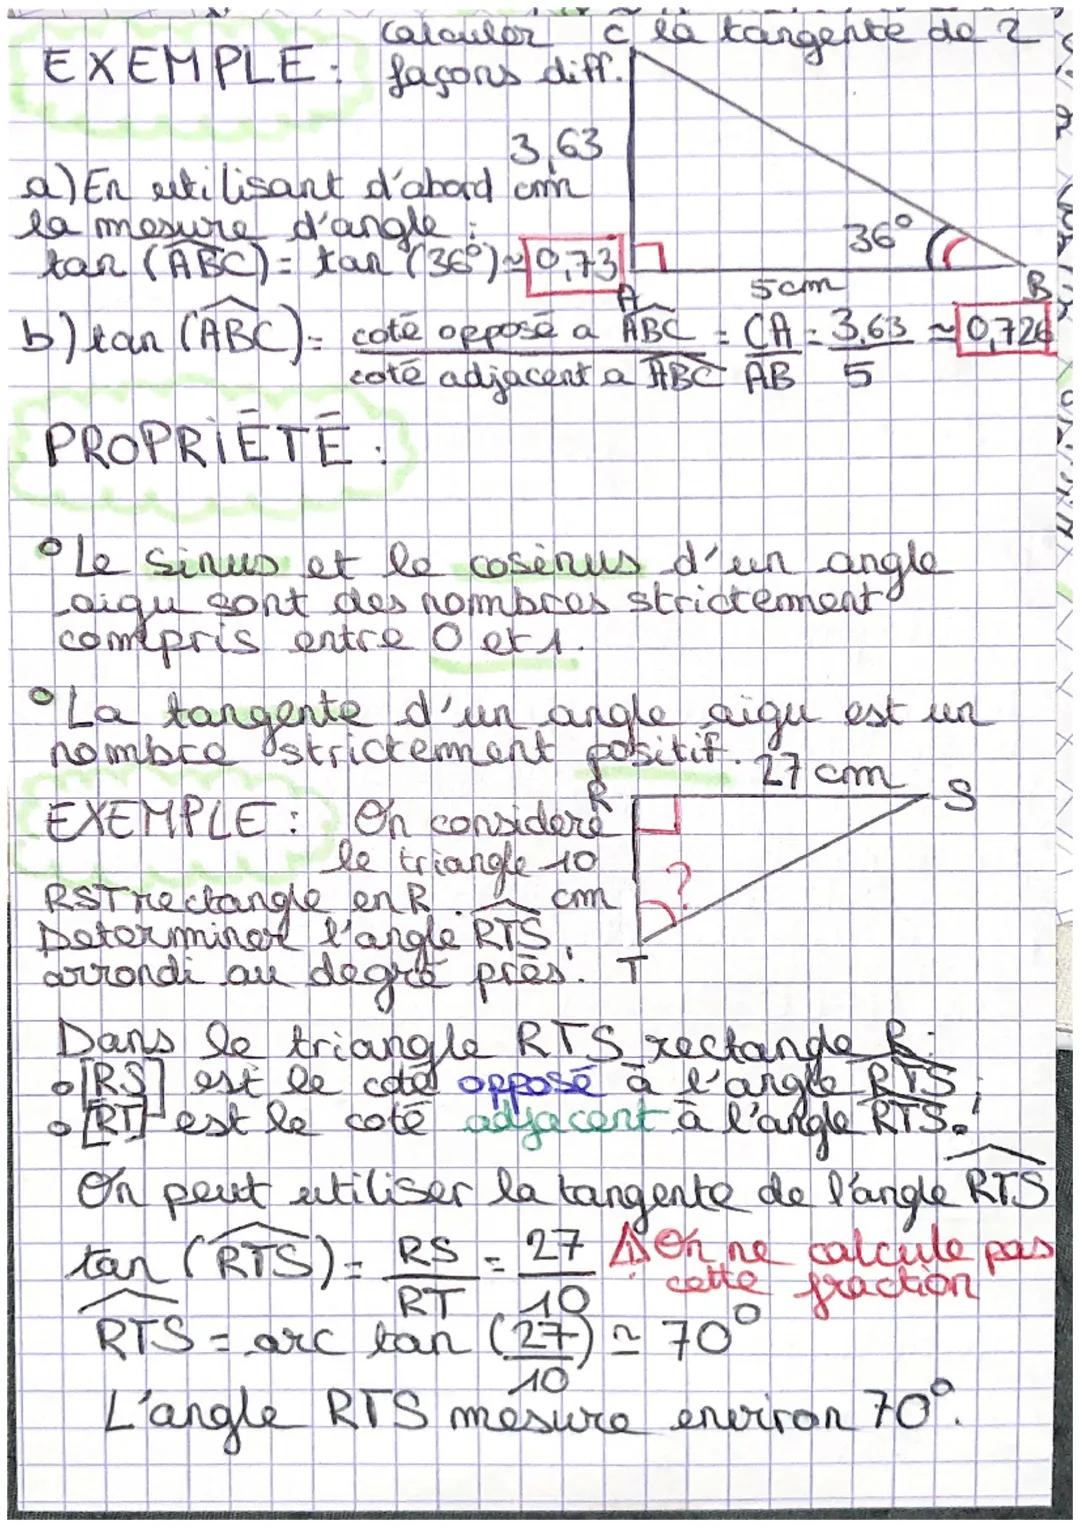 calculer la tangente de 2
EXEMPLE: façons diff.
C
3,63
cm
a) En utilisant d'abord
la mesure d'angle :
tan (ABC) = tan (36°) ≃ 0,73
36°
5cm
A
B
b) tan (ABC) = coté opposé a ABC = CA = 3,63 ≃ 0,726
coté adjacent a ABC AB 5
PROPRIÉTÉ :
° Le sinus et le cosinus d'un angle
aigu sont des nombres strictement
compris entre 0 et 1.
° La tangente d'un angle aigu est un
nombre strictement positif.
27 cm
R
S
EXEMPLE : On considère
le triangle
10
cm
?
T
RST rectangle en R.
Determiner l'angle RTS,
arrondi au degré près.
Dans le triangle RTS rectangle R:
o [RS] est le coté opposé à l'angle RTS ;
o [RT] est le coté adjacent à l'angle RTS.
On peut utiliser la tangente de l'angle RTS
tan (RTS) = RS = 27 ⚠ On ne calcule pas
RT 10 cette fraction
RTS = arc tan (27) ≃ 70°
10
L'angle RTS mesure environ 70°.